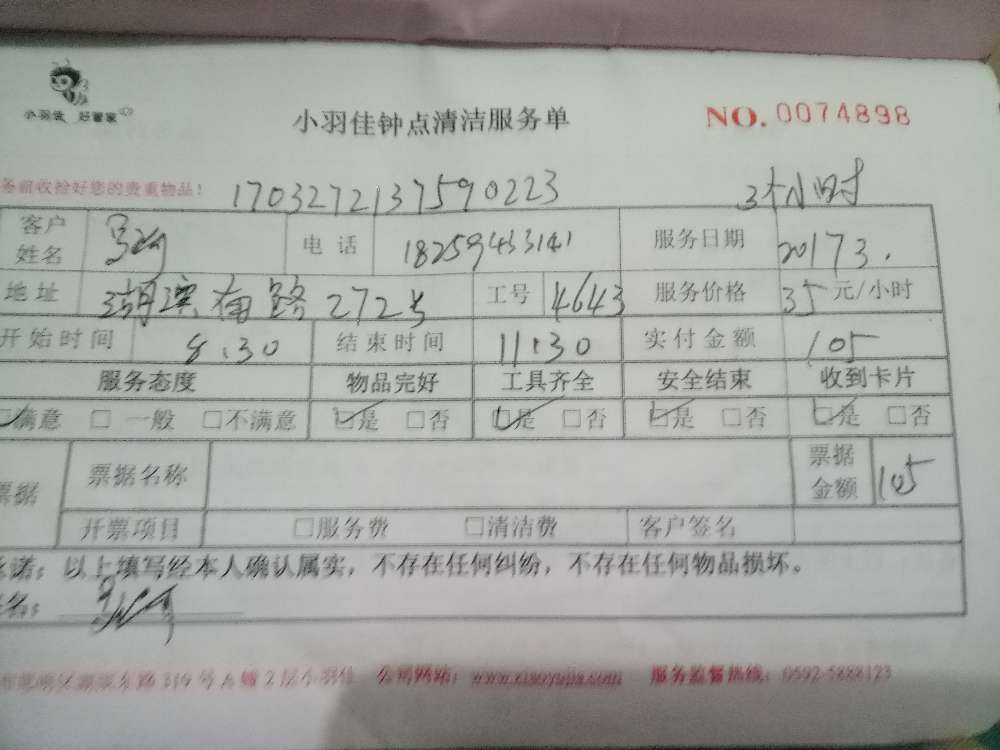 小羽佳 好管家
小羽佳钟点清洁服务单 NO. 0074898
务前收拾好您的贵重物品! 1703272137590223 3个小时
客户姓名 电话 18259433141 服务日期 20173.
地址 湖滨南路272号 工号 4643 服务价格 35元/小时
开始时间 8:30 结束时间 11:30 实付金额 105
服务态度 物品完好 工具齐全 安全结束 收到卡片
☑满意 □一般 □不满意 ☑是 □否 ☑是 □否 ☑是 □否 ☑是 □否
票据 票据名称 票据金额 105
开票项目 □服务费 □清洁费 客户签名
承诺:以上填写经本人确认属实,不存在任何纠纷,不存在任何物品损坏。
签名:
市思明区湖滨东路319号A幢2层小羽佳 公司网站:www.xiaoyujia.com 服务监督热线:0592-5888123